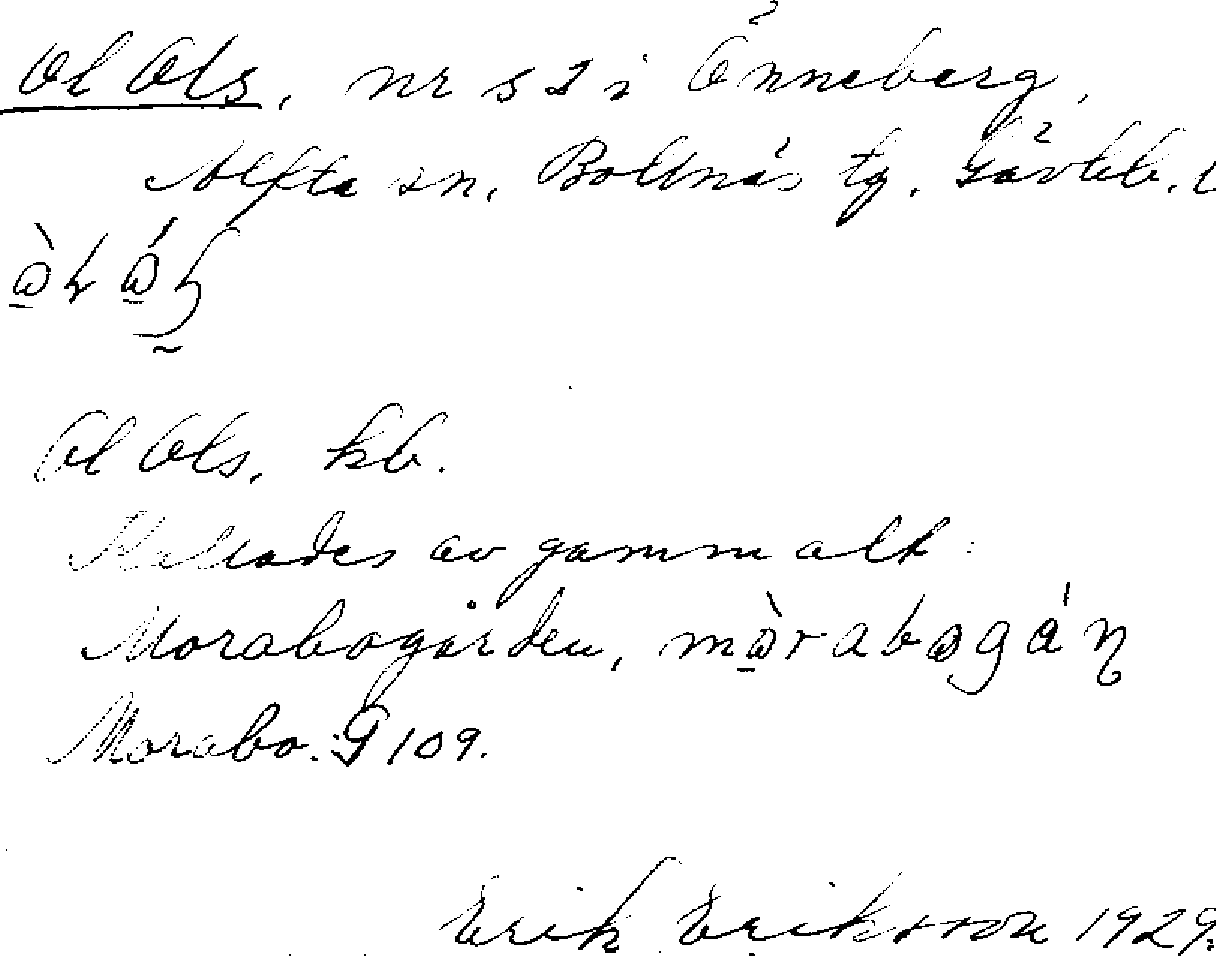 Ol Ols, nr 5 2 i Önneberg,
Alfta sn, Bollnäs tg. Gävleb. l
Ol Ols, kb.
Kallades av gammalt:
Morabogården,
Morabo. G 109.
Erik Eriksson 1929.